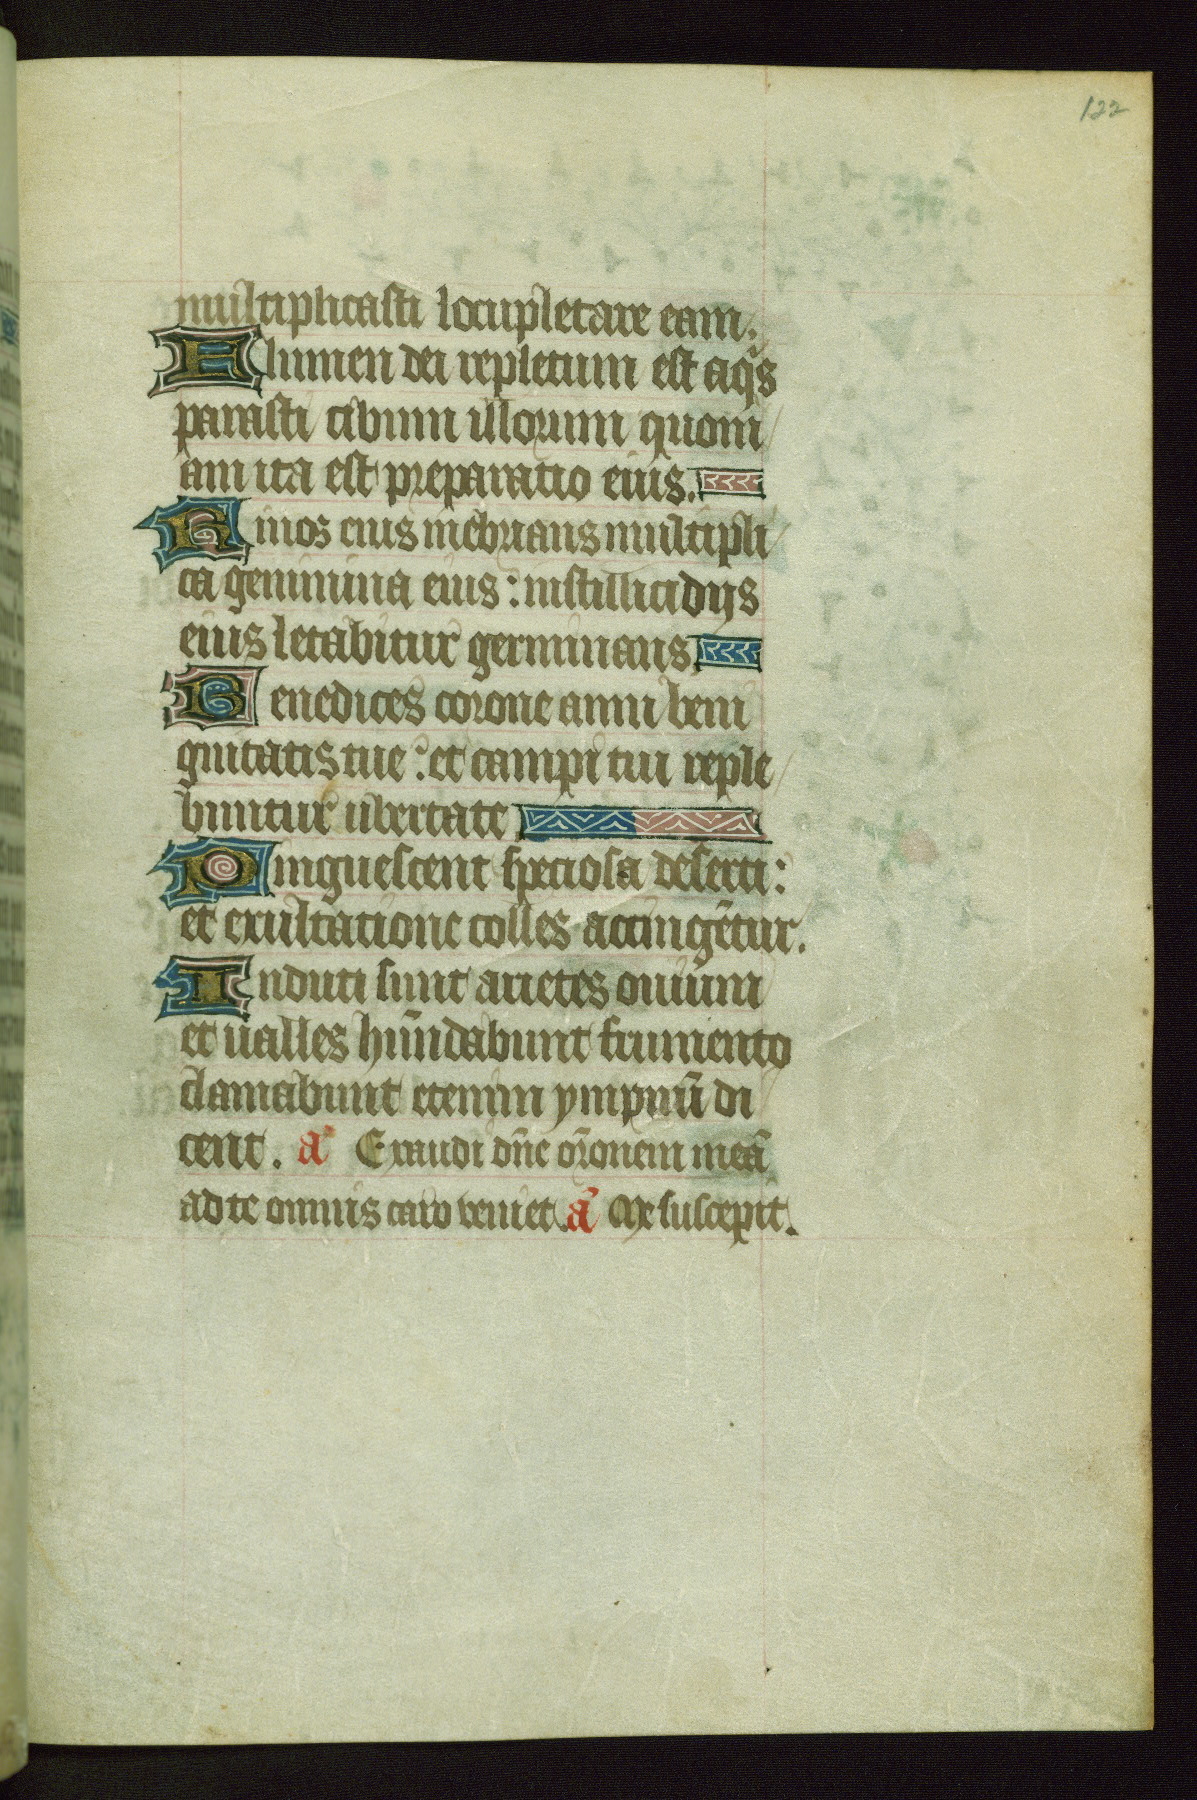 122
multiplicasti locupletare eam.
Flumen dei repletum est aq̃s
parasti cibum illorum quoni
am ita est preparatio eius.
Riuos eius inebrians multipli
ca genimina eius: in stillicidijs
eius letabitur germinans
Benedices corone anni beni
gnitatis tue: et campi tui reple
buntur ubertate
Pinguescent speciosa deserti:
et exultatione colles accingẽtur.
Induti sunt arietes ouium
et ualles hũndabunt frumento
clamabunt etenim ympnũ di
cent. a Exaudi dñe or̃onem meã
ad te omnis caro veniet. ã Me suscepit.